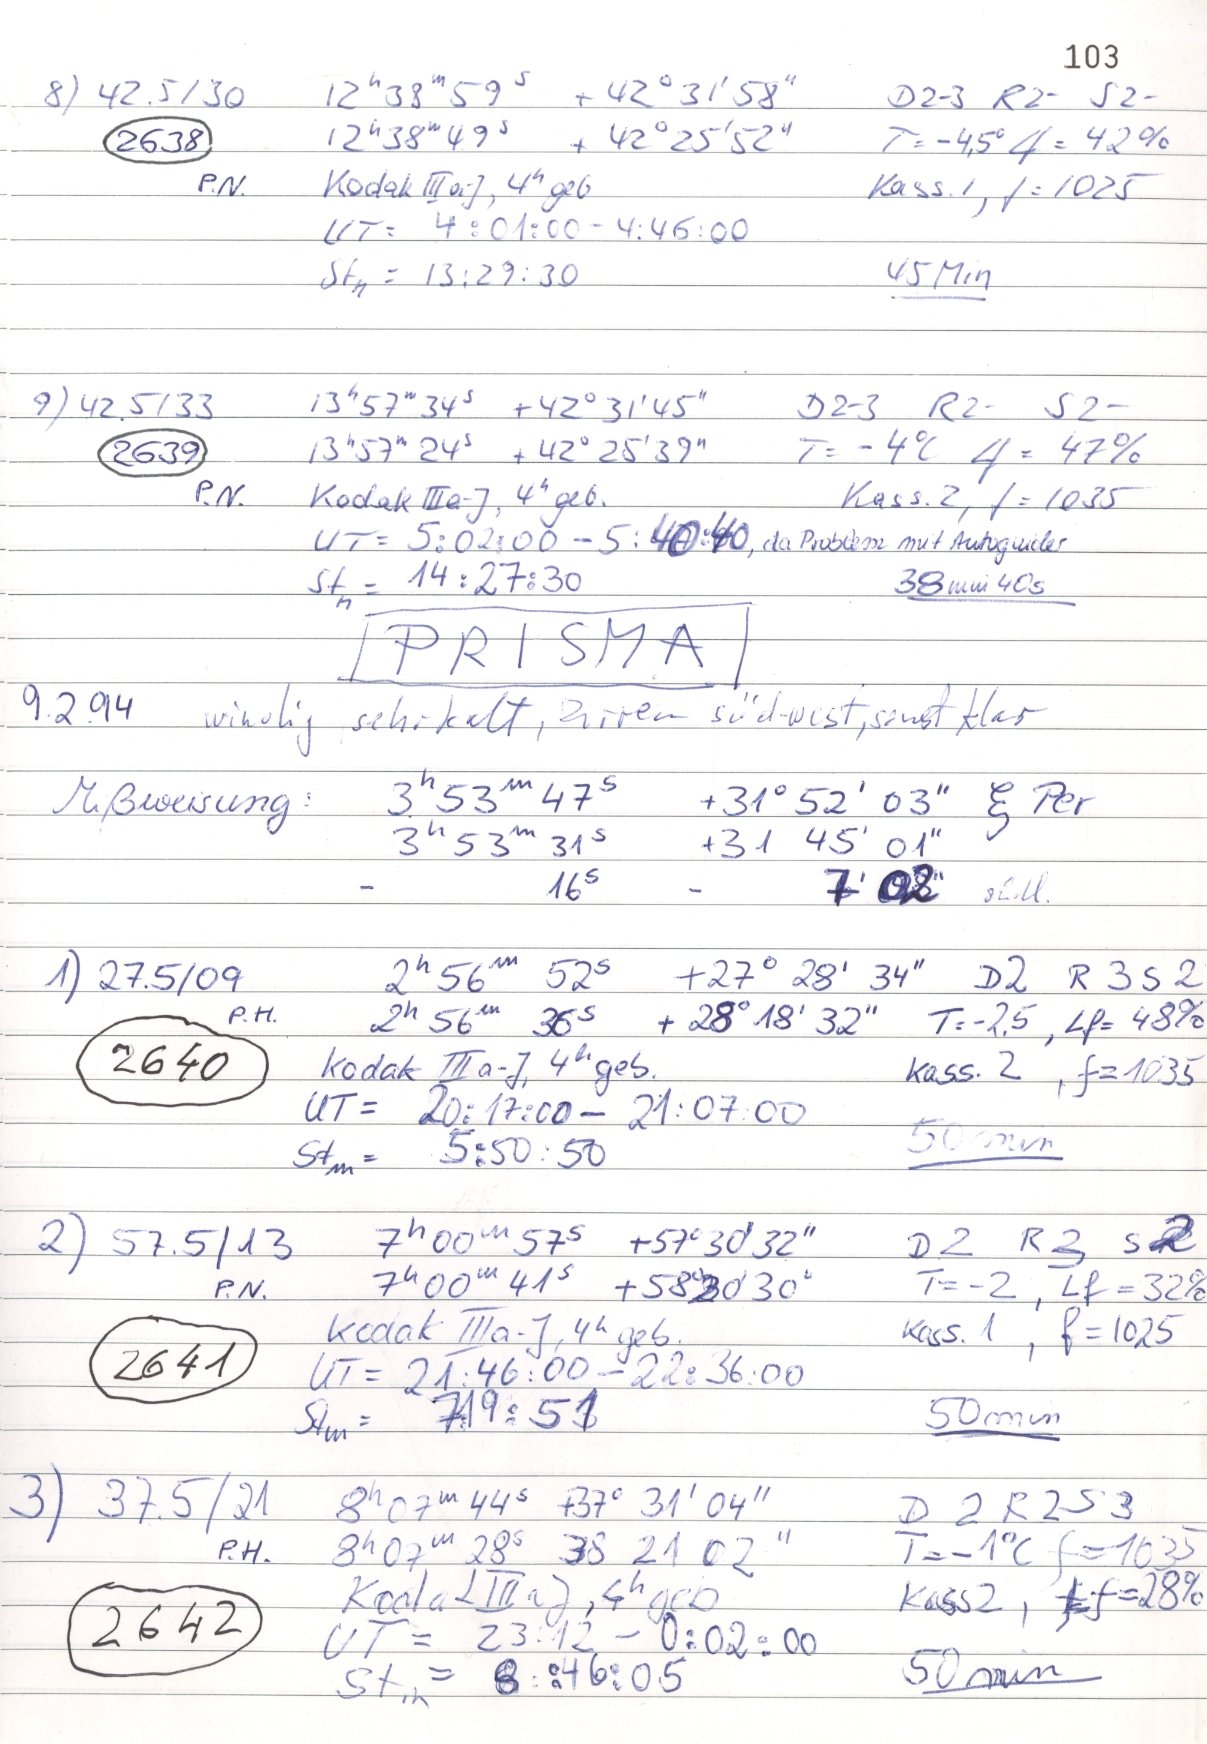 103
8) 42.5/30 12ʰ38ᵐ59ˢ +42°31'58" D2-3 R2- S2-
2638 12ʰ38ᵐ49ˢ +42°25'52" T=-4,5° Lf=42%
P.N. Kodak IIIa-J, 4ʰ geb Kass.1, f=1025
UT= 4:01:00-4:46:00
Stₙ = 13:29:30 45 Min
9) 42.5/33 13ʰ57ᵐ34ˢ +42°31'45" D2-3 R2- S2-
2639 13ʰ57ᵐ24ˢ +42°25'39" T= -4°C Lf= 47%
P.N. Kodak IIIa-J, 4ʰ geb. Kass.2, f=1035
UT= 5:02:00-5:40:40, da Probleme mit Autoguider
Stₙ = 14:27:30 38min40s
PRISMA
9.2.94 windig, sehr kalt, Zirren süd-west, sonst klar
Mißweisung: 3ʰ53ᵐ47ˢ +31°52'03" ξ Per
3ʰ53ᵐ31ˢ +31 45' 01"
- 16ˢ - 7' 02" südl.
1) 27.5/09 2ʰ56ᵐ52ˢ +27°28'34" D2 R3 S2
P.H. 2ʰ56ᵐ36ˢ +28°18'32" T=-2,5, Lf=48%
2640 Kodak IIIa-J, 4ʰ geb. Kass. 2, f=1035
UT= 20:17:00-21:07:00
Stₘ= 5:50:50 50 min
2) 57.5/13 7ʰ00ᵐ57ˢ +57°30'32" D2 R3 S2
P.N. 7ʰ00ᵐ41ˢ +58°20'30" T=-2, Lf=32%
Kodak IIIa-J, 4ʰ geb. Kass. 1, f=1025
2641 UT= 21:46:00-22:36:00
Stₘ= 7:19:51 50min
3) 37.5/21 8ʰ07ᵐ44ˢ +37°31'04" D2 R2 S3
P.H. 8ʰ07ᵐ28ˢ 38 21 02" T=-1°C f=1035
Kodak IIIaJ, 4ʰ geb Kass2, Lf=28%
2642 UT= 23:12-0:02:00
Stₘ= 8:46:05 50min